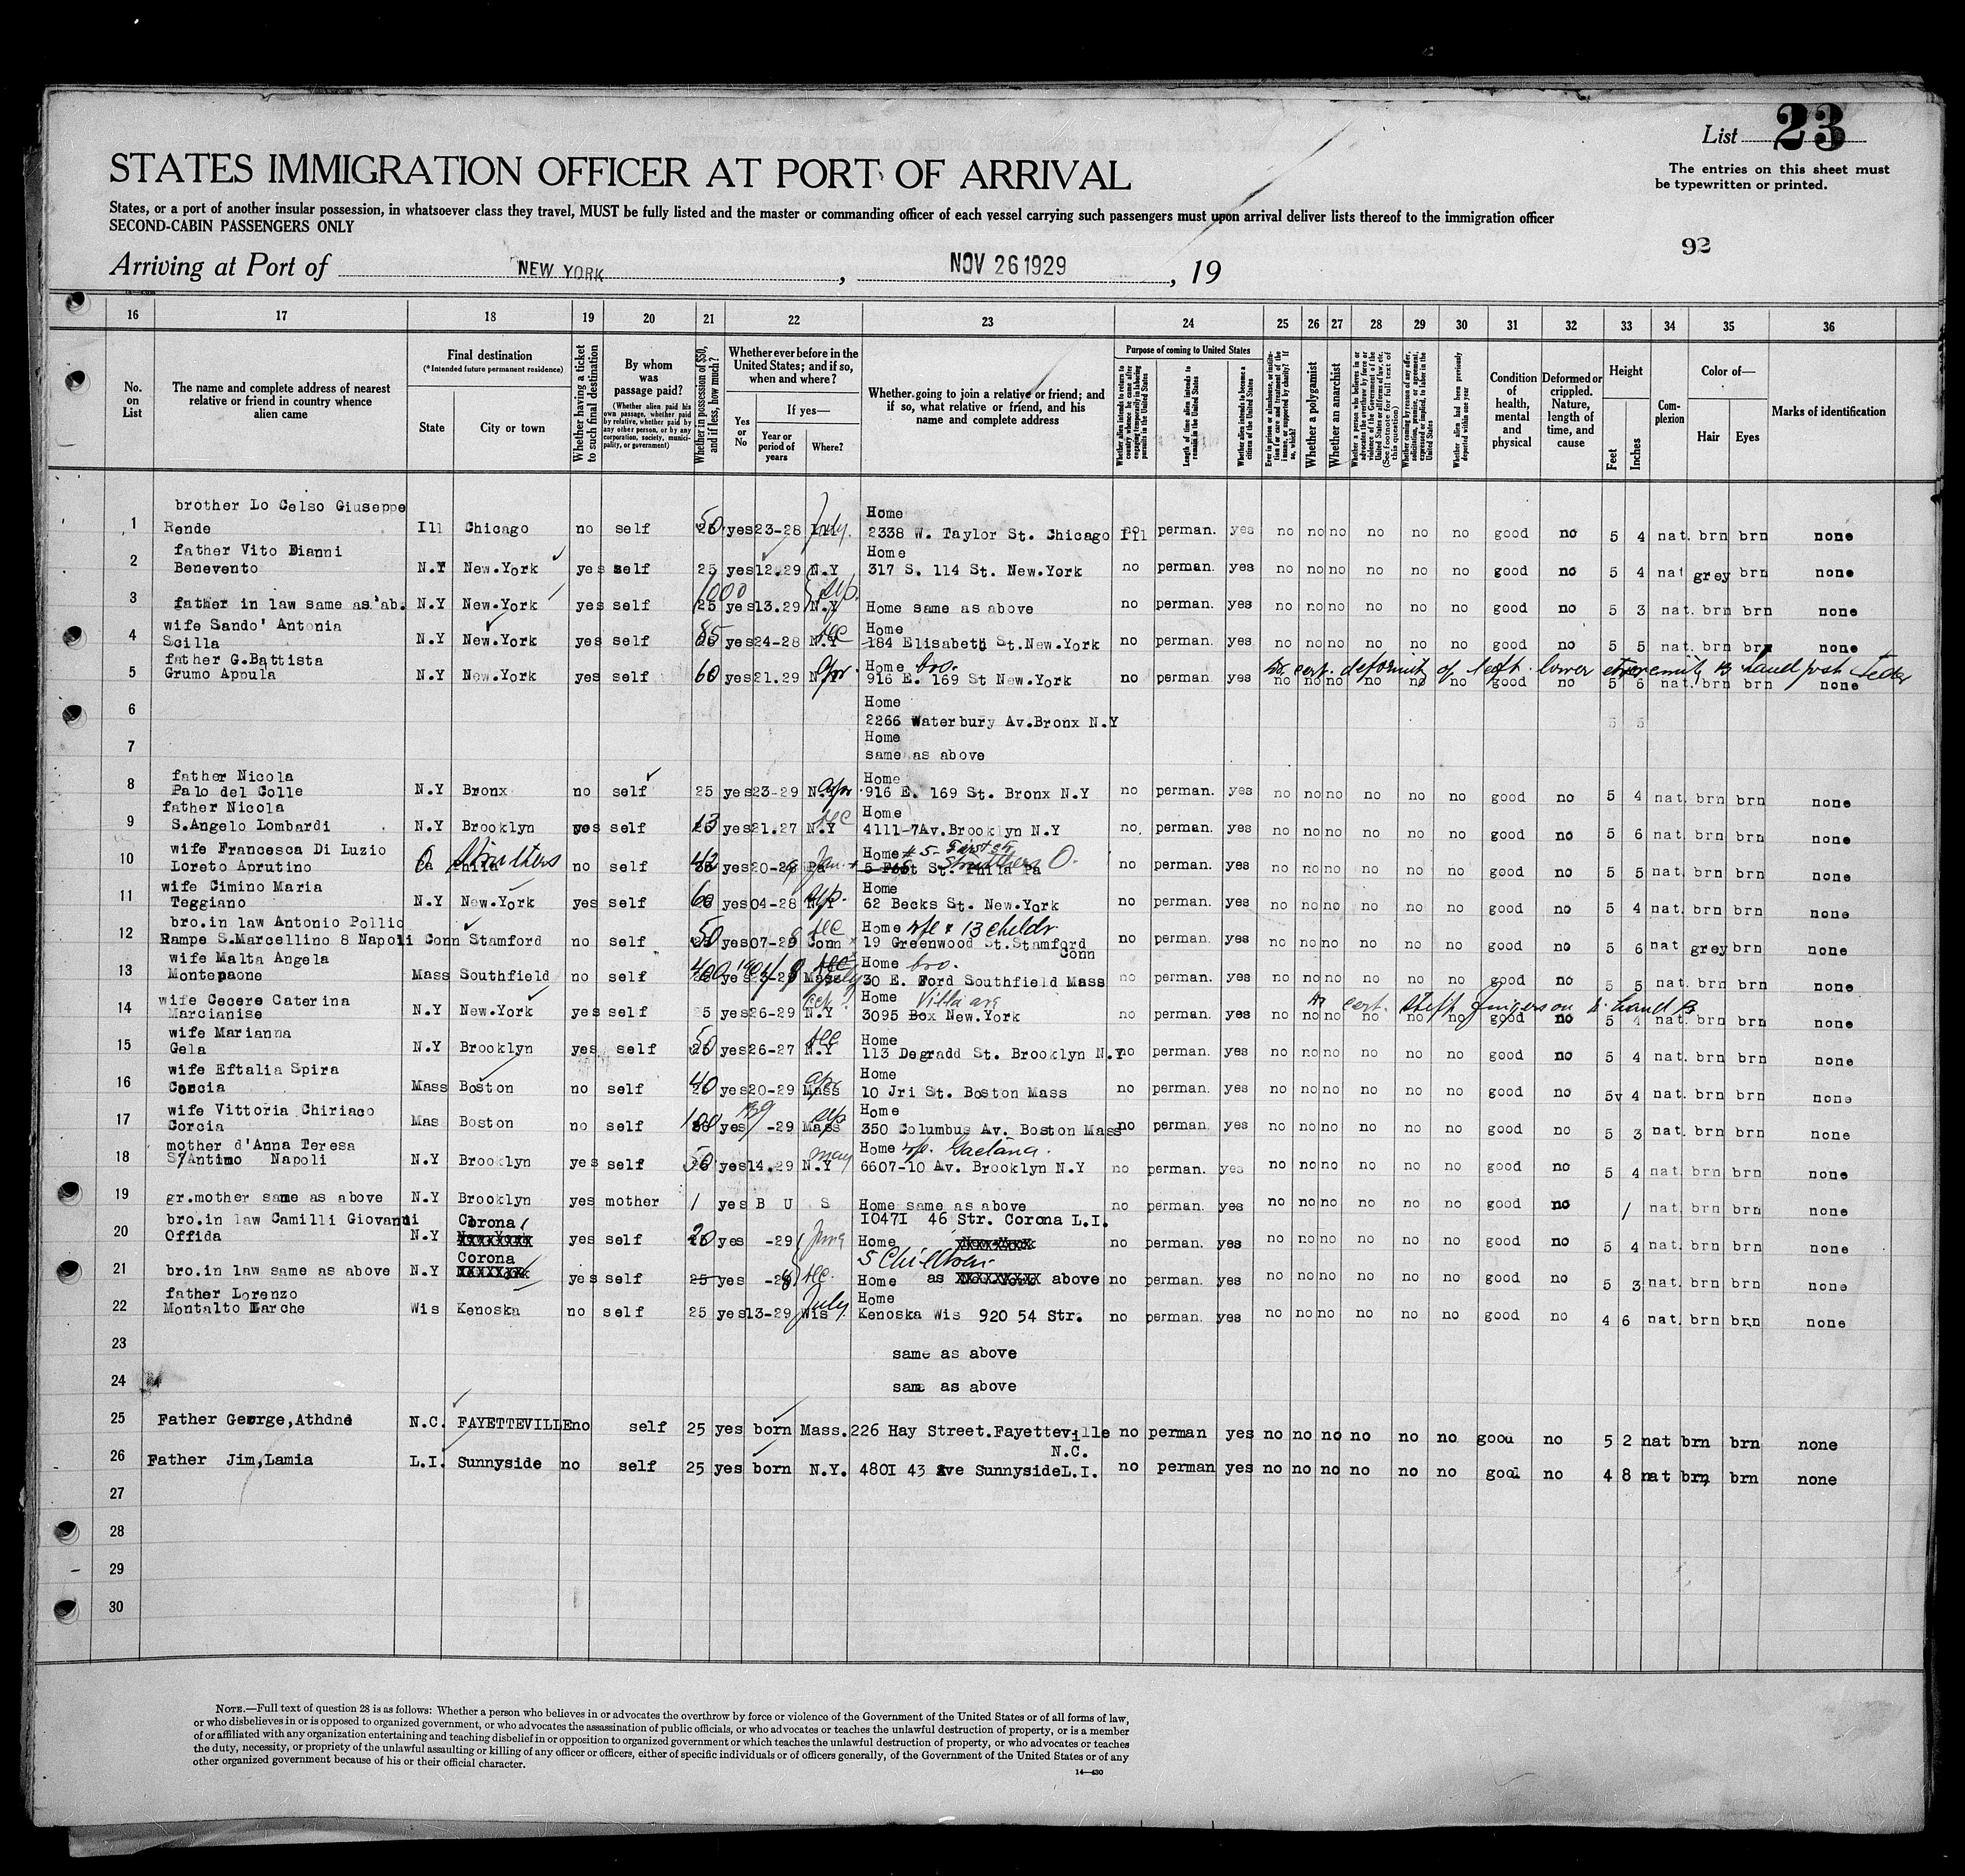 List 23
STATES IMMIGRATION OFFICER AT PORT OF ARRIVAL
The entries on this sheet must
be typewritten or printed.
States, or a port of another insular possession, in whatsoever class they travel, MUST be fully listed and the master or commanding officer of each vessel carrying such passengers must upon arrival deliver lists thereof to the immigration officer
SECOND-CABIN PASSENGERS ONLY
92
Arriving at Port of NEW YORK, NOV 26 1929, 19
16 17 18 19 20 21 22 23 24 25 26 27 28 29 30 31 32 33 34 35 36
No. on List
The name and complete address of nearest relative or friend in country whence alien came
Final destination
(*Intended future permanent residence)
State
City or town
Whether having a ticket to such final destination
By whom was passage paid?
(Whether alien paid his own passage, whether paid by relative, whether paid by any other person, or by any corporation, society, municipality, or government)
Whether in possession of $50, and if less, how much?
Whether ever before in the United States; and if so, when and where?
Yes or No
If yes—
Year or period of years
Where?
Whether going to join a relative or friend; and if so, what relative or friend, and his name and complete address
Purpose of coming to United States
Whether alien intends to return to country whence he came after engaging temporarily in laboring pursuits in the United States
Length of time alien intends to remain in the United States
Whether alien intends to become a citizen of the United States
Ever in prison or almshouse, or institution for care and treatment of the insane, or supported by charity? If so, which?
Whether a polygamist
Whether an anarchist
Whether a person who believes in or advocates the overthrow by force or violence of the Government of the United States or all forms of law, etc. (See footnote for full text of this question)
Whether coming by reason of any offer, solicitation, promise, or agreement, expressed or implied, to labor in the United States
Whether alien had been previously deported within one year
Condition of health, mental and physical
Deformed or crippled. Nature, length of time, and cause
Height
Feet
Inches
Complexion
Color of—
Hair
Eyes
Marks of identification
brother Lo Celso Giuseppe Home
1 Rende Ill Chicago no self 50 yes 23-28 Ill July 2338 W. Taylor St. Chicago Ill no perman. yes no no no no no no good no 5 4 nat. brn brn none
father Vito Dianni Home
2 Benevento N.Y New.York yes self 25 yes 12.29 N.Y 317 S. 114 St. New.York no perman. yes no no no no no no good no 5 4 nat grey brn none
3 father in law same as ab. N.Y New.York yes self 25 1000 yes 13.29 N.Y Sep. Home same as above no perman. yes no no no no no no good no 5 3 nat. brn brn none
wife Sando' Antonia Home
4 Scilla N.Y New.York yes self 85 yes 24-28 N.Y Dec 184 Elisabeth St.New.York no perman. yes no no no no no no good no 5 5 nat. brn brn none
father G.Battista Home bro. cert. deformity of left lower extremity
5 Grumo Apoula N.Y New.York yes self 60 yes 21.29 N.Y Apr. 916 E. 169 St New.York no perman. yes no no no no no no good no 5 6 nat. brn brn none
Home
6 2266 Waterbury Av.Bronx N.Y 5 5
Home
7 same as above
father Nicola Home
8 Palo del Colle N.Y Bronx no self 25 yes 23-29 N.Y Apr 916 E. 169 St. Bronx N.Y no perman. yes no no no no no no good no 5 4 nat. brn brn none
father Nicola Home
9 S.Angelo Lombardi N.Y Brooklyn yes self 13 yes 21.27 N.Y Dec 4111-7Av.Brooklyn N.Y no. perman. yes no no no no no no good no 5 6 nat. brn brn none
wife Francesca Di Luzio Home # 5- First St.
10 Loreto Aprutino Pa Phila O Struthers no self 42 yes 20-29 Pa Jan. 5 Foot St. Phila Pa Struthers O. no perman. yes no no no no no no good no 5 5 nat. brn brn none
wife Cimino Maria Home
11 Teggiano N.Y New.York yes self 60 yes 04-28 N.Y Sep. 62 Becks St. New.York no perman. yes no no no no no no good no 5 4 nat. brn brn none
bro.in law Antonio Pollio Home wfe & 13 childr
12 Rampe S.Marcellino 8 Napoli Conn Stamford no self 50 yes 07-29 Conn Dec 19 Greenwood St.Stamford Conn no perman. yes no no no no no no good no 5 6 nat grey brn none
wife Malta Angela Home bro.
13 Montepaone Mass Southfield no self 400 yes Mass July 30 E. Ford Southfield Mass no perman. yes no no no no no no good no 5 5 nat. brn brn none
wife Cecere Caterina Home Villa ave cert. stiff fingers on hand
14 Marcianise N.Y New.York yes self 5 yes 26-29 N.Y 3095 Box New.York no perman. yes no no no no no no good no 5 4 nat. brn brn none
wife Marianna Home
15 Gela N.Y Brooklyn yes self 50 yes 26-27 N.Y Dec 113 Degradd St. Brooklyn N.Y no perman. yes no no no no no no good no 5 4 nat. brn brn none
wife Eftalia Spira Home
16 Corcia Mass Boston no self 40 yes 20-29 Mass Apr 10 Jri St. Boston Mass no perman. yes no no no no no no good no 5 4 nat. brn brn none
wife Vittoria Chiriaco Home
17 Corcia Mas Boston no self 100 yes -29 Mass Sep 350 Columbus Av. Boston Mass no perman. yes no no no no no no good no 5 3 nat. brn brn none
mother d'Anna Teresa Home Gaetana.
18 S/Antimo Napoli N.Y Brooklyn yes self 50 yes 14.29 N.Y May 6607-10 Av. Brooklyn N.Y no perman. yes no no no no no no good no 5 4 nat. brn brn none
19 gr.mother same as above N.Y Brooklyn yes mother / yes B U S Home same as above no perman. yes no no no no no no good no / nat. brn brn none
bro.in law Camilli Giovanni Corona I047I 46 Str. Corona L.I.
20 Offida N.Y XXXXXXXX yes self 20 yes -29 June Home XXXXXXXX no perman. yes no no no no no no good no 5 4 nat. brn brn none
Corona 5 Children
21 bro.in law same as above N.Y XXXXXXXX yes self 25 yes -28 Dec. Home as XXXXXXXXX above no perman. yes no no no no no no good no 5 3 nat. brn brn none
father Lorenzo Home
22 Montalto Marche Wis Kenoska no self 25 yes 13-29 Wis July Kenoska Wis 920 54 Str. no perman. yes no no no no no no good no 4 6 nat. brn brn none
23 same as above
24 same as above
25 Father George,Athdne N.C. FAYETTEVILLE no self 25 yes born Mass. 226 Hay Street.Fayetteville N.C. no perman yes no no no no no no good no 5 2 nat brn brn none
26 Father Jim,Lamia L.I. Sunnyside no self 25 yes born N.Y. 480I 43 Ave SunnysideL.I. no perman yes no no no no no no good no 4 8 nat brn brn none
27
28
29
30
NOTE.—Full text of question 28 is as follows: Whether a person who believes in or advocates the overthrow by force or violence of the Government of the United States or of all forms of law,
or who disbelieves in or is opposed to organized government, or who advocates the assassination of public officials, or who advocates or teaches the unlawful destruction of property, or is a member
of or affiliated with any organization entertaining and teaching disbelief in or opposition to organized government or which teaches the unlawful destruction of property, or who advocates or teaches
the duty, necessity, or propriety of the unlawful assaulting or killing of any officer or officers, either of specific individuals or of officers generally, of the Government of the United States or of any
other organized government because of his or their official character.
14—430